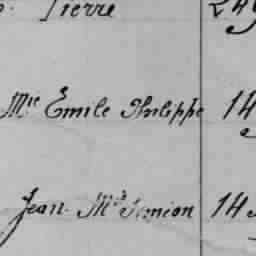 Pierre 249
Mie Emile Philippe 14
Jean Mie Simion 14